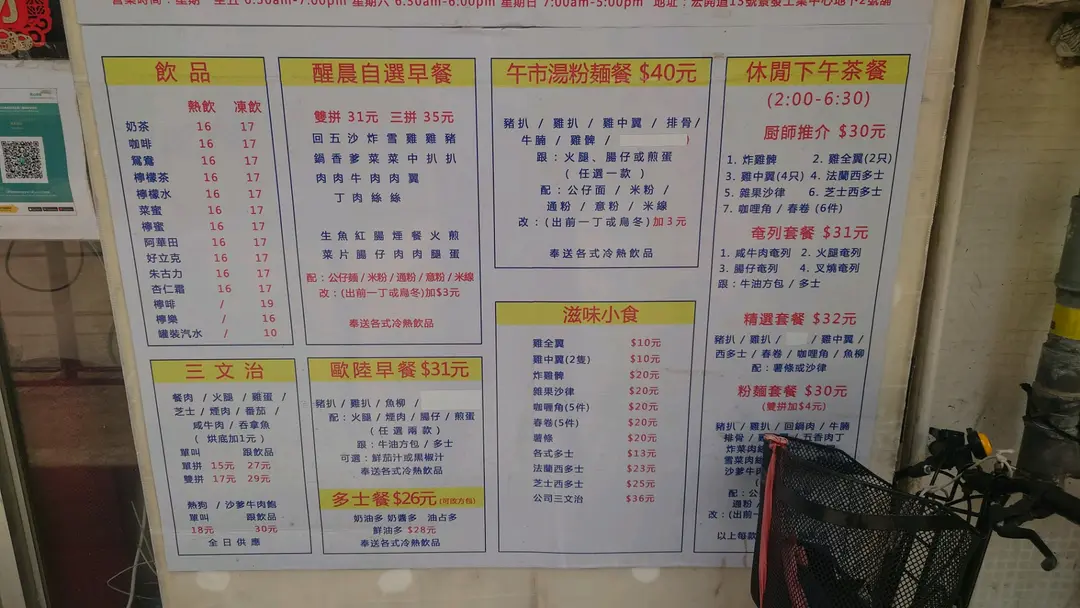 營業時間：星期一至五 6:30am-7:00pm 星期六 6:30am-6:00pm 星期日 7:00am-5:00pm 地址：宏開道13號景發工業中心地下2號舖
飲品
熱飲 凍飲
奶茶 16 17
咖啡 16 17
鴛鴦 16 17
檸檬茶 16 17
檸檬水 16 17
菜蜜 16 17
檸蜜 16 17
阿華田 16 17
好立克 16 17
朱古力 16 17
杏仁霜 16 17
檸啡 / 19
檸樂 / 16
罐裝汽水 / 10
醒晨自選早餐
雙拼 31元 三拼 35元
回五沙炸雪雞雞豬
鍋香爹菜菜中扒扒
肉肉牛肉肉翼
丁肉絲絲
生魚紅腸煙餐火煎
菜片腸仔肉肉腿蛋
配：公仔麵/米粉/通粉/意粉/米線
改：(出前一丁或烏冬)加$3元
奉送各式冷熱飲品
午市湯粉麵餐 $40元
豬扒 / 雞扒 / 雞中翼 / 排骨/
牛腩 / 雞髀 / )
跟：火腿、腸仔或煎蛋
( 任選一款 )
配：公仔面 / 米粉 /
通粉 / 意粉 / 米線
改：(出前一丁或烏冬)加3元
奉送各式冷熱飲品
休閒下午茶餐
(2:00-6:30)
廚師推介 $30元
1. 炸雞髀 2. 雞全翼(2只)
3. 雞中翼(4只) 4. 法蘭西多士
5. 雜果沙律 6. 芝士西多士
7. 咖哩角 / 春卷 (6件)
奄列套餐 $31元
1. 咸牛肉奄列 2. 火腿奄列
3. 腸仔奄列 4. 叉燒奄列
跟：牛油方包 / 多士
精選套餐 $32元
豬扒 / 雞扒 / / 雞中翼 /
西多士 / 春卷 / 咖哩角 / 魚柳
配：薯條或沙律
粉麵套餐 $30元
(雙拼加$4元)
豬扒 / 雞扒 / 回鍋肉 / 牛腩
排骨 / 五香肉丁
炸菜肉
雪菜肉
沙爹牛
配：公
通粉
改：(出前一
以上每款
三文治
餐肉 / 火腿 / 雞蛋 /
芝士 / 煙肉 / 番茄 /
咸牛肉 / 吞拿魚
( 烘底加1元 )
單叫 跟飲品
單拼 15元 27元
雙拼 17元 29元
熱狗 / 沙爹牛肉飽
單叫 跟飲品
18元 30元
全日供應
歐陸早餐 $31元
豬扒 / 雞扒 / 魚柳 /
配：火腿 / 煙肉 / 腸仔 / 煎蛋
( 任選兩款 )
跟：牛油方包 / 多士
可選：鮮茄汁或黑椒汁
奉送各式冷熱飲品
多士餐 $26元 (可改方包)
奶油多 奶醬多 油占多
鮮油多 $28元
奉送各式冷熱飲品
滋味小食
雞全翼 $10元
雞中翼(2隻) $10元
炸雞髀 $20元
雜果沙律 $20元
咖喱角(5件) $20元
春卷(5件) $20元
薯條 $20元
各式多士 $13元
法蘭西多士 $23元
芝士西多士 $25元
公司三文治 $36元